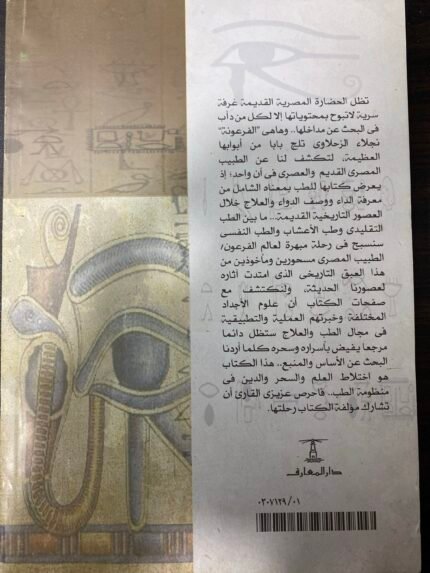 تظل الحضارة المصرية القديمة غرفة
سرية لاتبوح بمحتوياتها إلا لكل من دأب
فى البحث عن مداخلها.. وهاهى "الفرعونة"
نجلاء الزحلاوى تلج بابا من أبوابها
العظيمة، لتكشف لنا عن الطبيب
المصرى القديم والعصرى فى آن واحد؛ إذ
يعرض كتابها للطب بمعناه الشامل من
معرفة الداء ووصف الدواء والعلاج خلال
العصور التاريخية القديمة... ما بين الطب
التقليدى وطب الأعشاب والطب النفسى
سنسبح فى رحلة مبهرة لعالم الفرعون/
الطبيب المصرى مسحورين ومأخوذين من
هذا العبق التاريخى الذى امتدت آثاره
لعصورنا الحديثة، ولنكتشف مع
صفحات الكتاب أن علوم الأجداد
المختلفة وخبرتهم العملية والتطبيقية
فى مجال الطب والعلاج ستظل دائما
مرجعا يفيض بأسراره وسحره كلما أردنا
البحث عن الأساس والمنبع.. هذا الكتاب
هو اختلاط العلم والسحر والدين فى
منظومة الطب.. فاحرص عزيزى القارئ أن
تشارك مؤلفة الكتاب رحلتها.
دارالمعارف
٠٣٠٧١٢٩/٠١